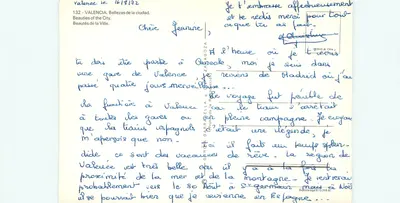 Valence le 16/8/72
Je t'embrasse affectueusement
et te redis merci pour tout
ce que tu as fait.
152 - VALENCIA. Bellezas de la ciudad.
Beauties of the City.
Beautés de la Ville.
Chère Jeanne,
A l'heure où je t'écris
tu dois être partie à mais je suis dans
une gare de Valence je reviens de Madrid où j'ai
passé quatre jours merveilleux
Le voyage fut pénible de
la à Valence car le train s'arrêtait
à toutes les gares ou en pleine campagne. Je croyais
que les trains espagnols c'était une légende, je
m'aperçois que non.
Ici il fait un temps splen-
dide ce sont des vacances de rêve. La région de
Valence est très belle car il y a à la fois la
proximité de la mer et de la montagne. Je rentrerai
probablement vers le 30 Août à St Germain mais à Noël
il se pourrait bien que je revienne en Espagne...